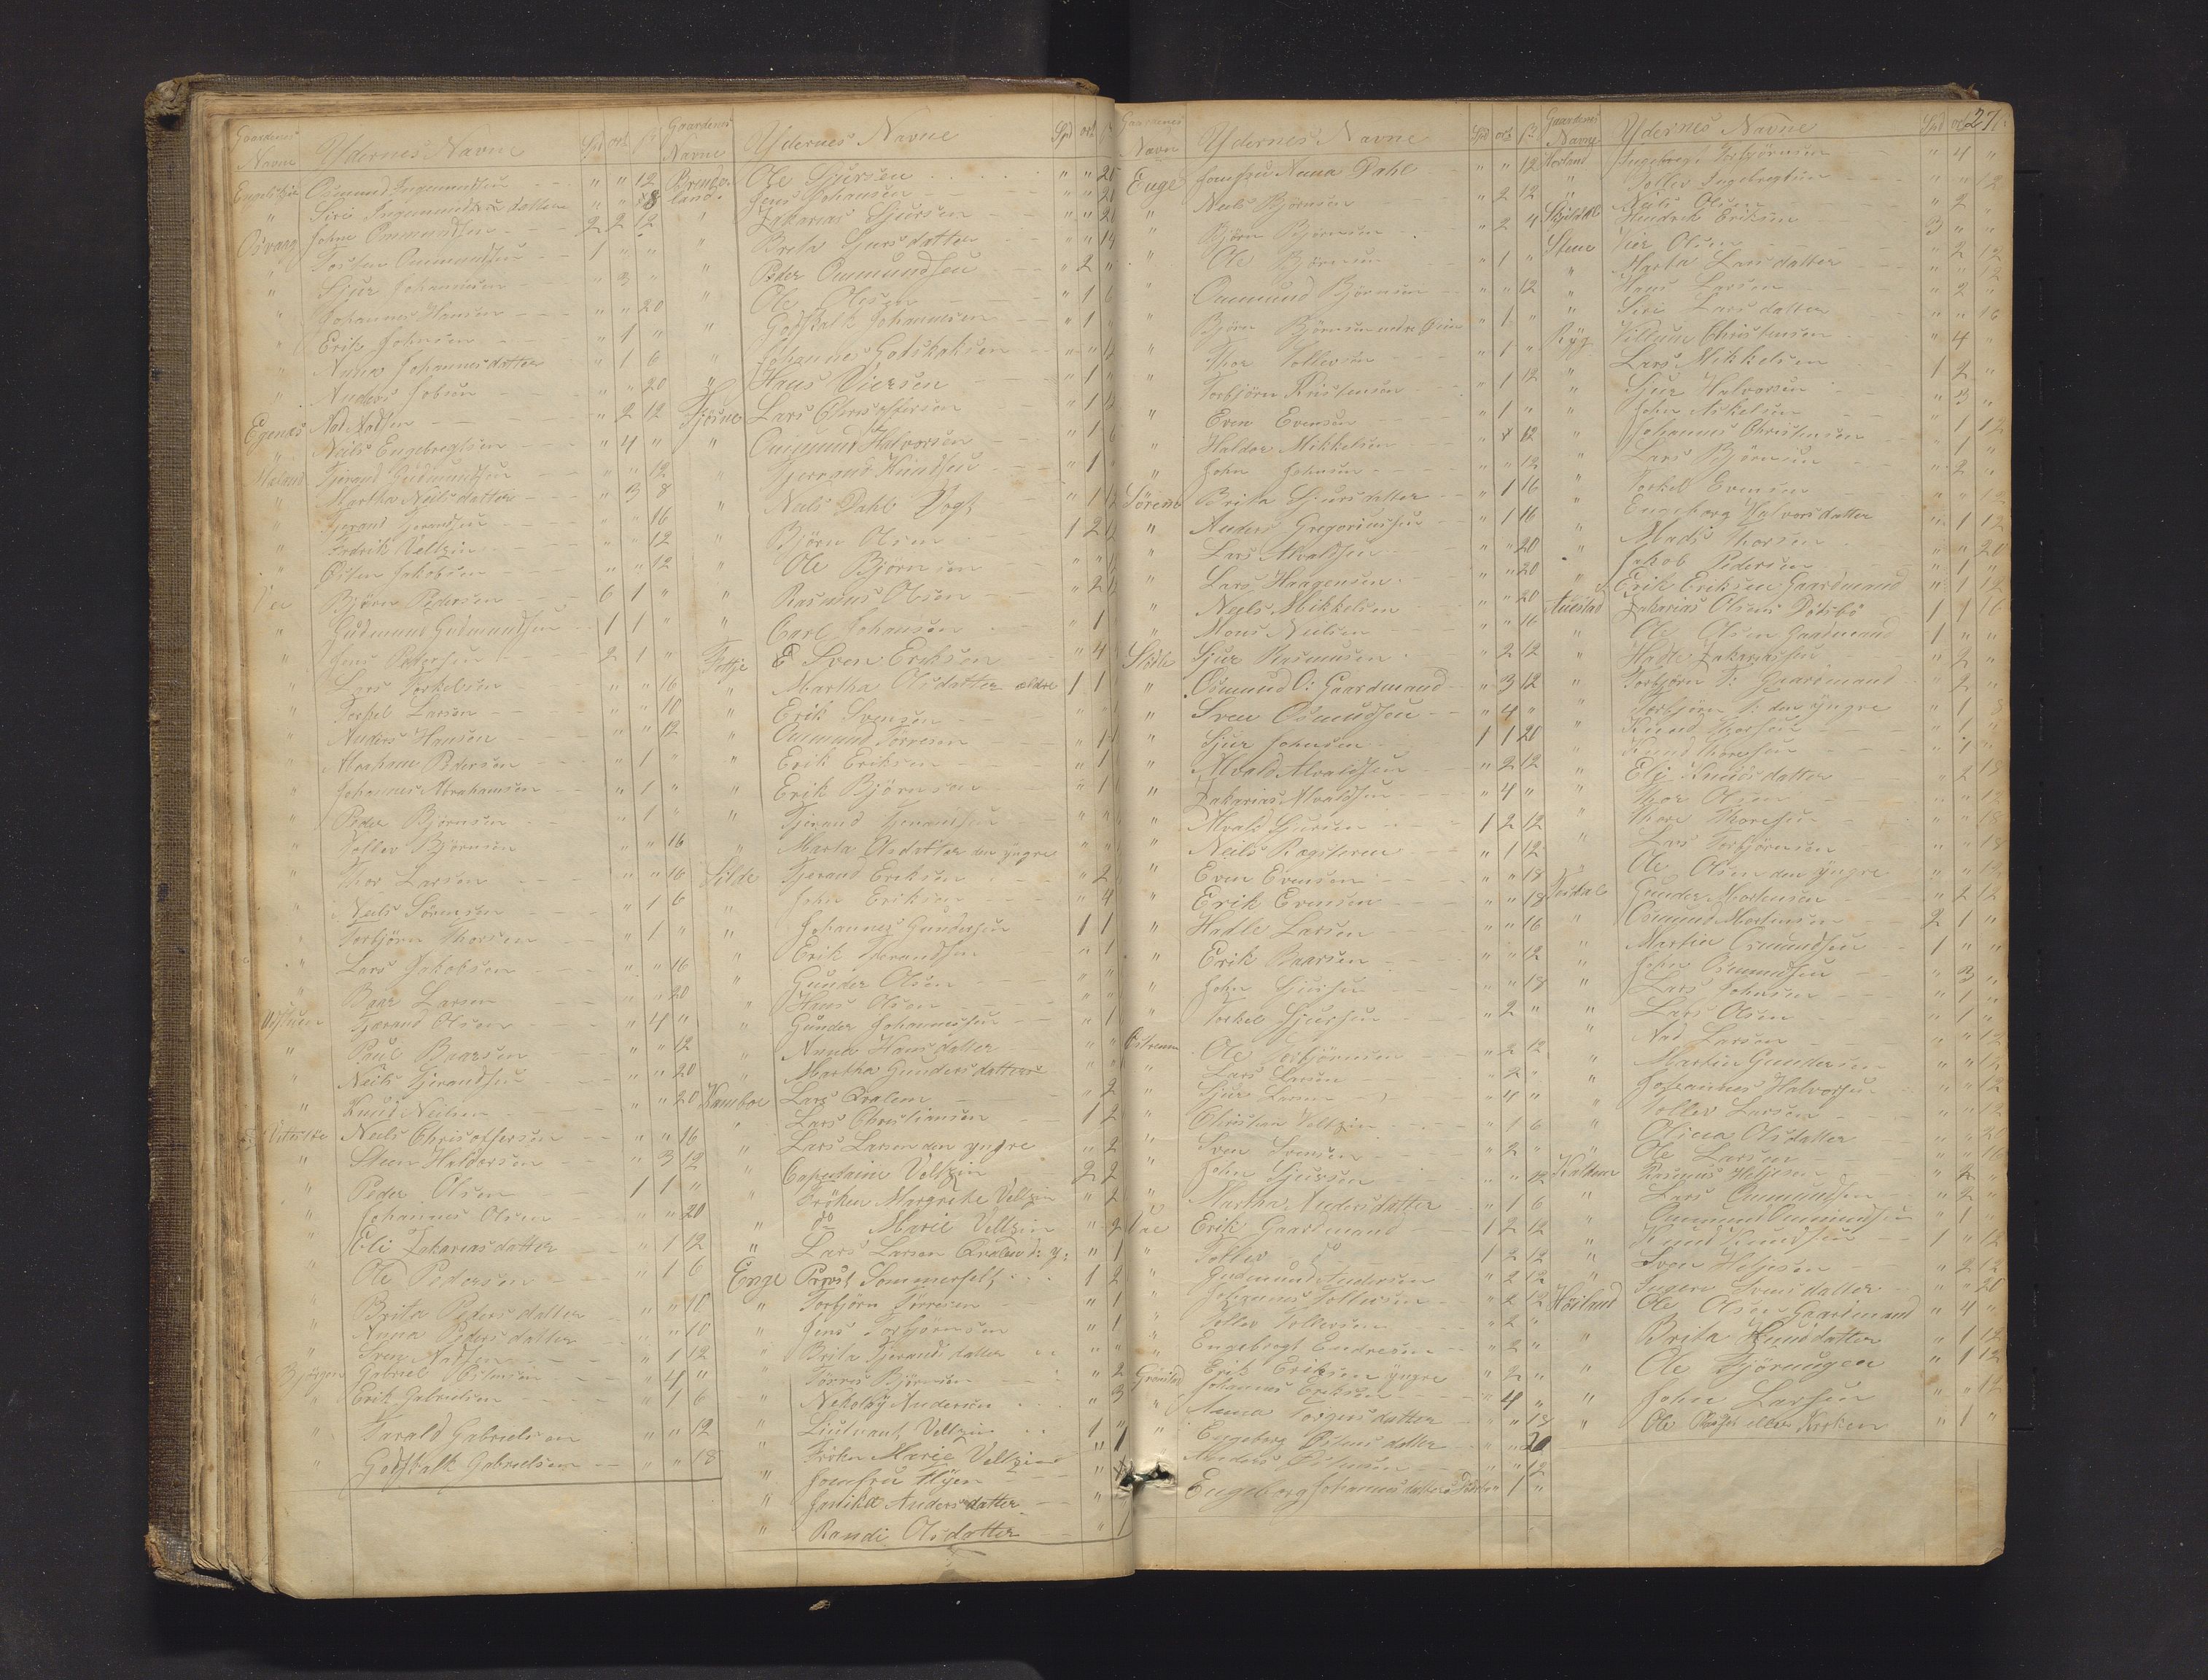 Gaardenes Navne Ydernes Navne Spd ort ß
Osmund Ingemundsen " " 12
" Siri Ingemundsdatter " " 8
Osvaag John Ommundsen 2 2 12
" Torsten Ommundsen 1 " "
" Sjur Johannesen " 3 "
" Johannes Hansen " " 20
" Erik Johnsen " 1 "
" Anna Johannesdatter " 1 6
" Anders Jobsen " " 20
Egenæs Nad Nadsen " 2 12
" Neils Engebregtsen " 4 "
Haland Tjerand Gudmundsen " " 12
" Martha Neilsdatter " 3 8
" Tjerand Tjerandsen " " 16
" Fredrik Veltzin " " 12
" Østen Jakobsen " " 12
Vee Bjørn Pedersen 6 1 "
" Gudmund Gudmundsen 1 1 "
" Jens Pettersen 2 1 "
" Lars Torkelsen " " 16
" Torkel Larsen " " 10
" Anders Hansen " " 12
" Abraham Pedersen " 1 "
" Johannes Abrahamsen " 1 "
" Peder Bjørnsen " 1 "
" Tollev Bjørnsen " " 16
" Thor Larsen " " 16
" Neils Sørensen " 1 6
" Torbjørn Thorsen " 1 "
" Lars Jakobsen " " 16
" Baar Larsen " " 20
Tjærand Olsen " 4 "
" Paul Baarsen " " 12
" Neils Tjerandsen " " 20
" Knud Neilsen " " 20
Neils Christoffersen " " 16
" Steen Haldorsen " 3 12
" Peder Olsen 1 1 "
" Johannes Olsen " " 20
" Eli Zakariasdatter " 1 12
" Ole Pedersen " 1 6
" Brita Pedersdatter " " 10
" Anna Pedersdatter " " 10
" Sven Nadsen " 1 12
Bjørgen Gabriel Østensen " 4 "
" Erik Gabrielsen " 1 6
" Tarald Gabrielsen " " 12
" Godskalk Gabrielsen " " 18
Gaardenes Navne Ydernes Navne Spd ort
Brendeland Ole Sjursen " " 20
Jens Johansen " " 20
" Zakarias Sjursen " " 20
" Brita Sjursdatter " " 14
" Peder Ommundsen " 2 "
" Ole Olesen " 1 6
" Godskalk Johannesen " 1 "
" Johannes Godskalksen
" Hans Viersen " 1 "
Fjøsne Lars Christoffersen " 1
" Ommund Halvorsen " 1 6
" Tjerrand Knudsen " 1
" Neils Dahl Vogt " 1
" Bjørn Olsen 1 2
" Ole Bjørnsen
" Rasmus Olsen " 2
" Carl Johansen " 1
Tottje E Sven Eriksen " 4
" Martha Olsdatter ældre 1 1
" Erik Svensen
" Ommund Torresen " 1
" Erik Eriksen " 1
" Erik Bjørnsen " 1
" Tjerand Tjerandsen
" Marta Olsdatter den yngre
Silde Tjerand Eriksen " 2
" John Eriksen " 4
" Johannes Gundersen 1 1
" Erik Tjerandsen " 1
" Gunder Olsen " "
" Hans Olsen " "
" Gunder Johannessen " 1
" Anna Hansdatter " "
" Martha Gundersdatter " "
Hamboe Lars Qvalem " 2
" Lars Christiansen 1 2
" Lars Larsen den yngre " 2
" Capedaine Veltzin 2 2
" Frøken Margrethe Veltzin " 2
" do Marie Veltzin " 2
" Lars Larsen Qvalen d: y: " 1
Enge Provst Sommerfelt 1 2
" Torbjørn Tørresen " 1
" Jens Torbjørnsen " 1
" Brita Tjerandsdatter " "
" Tørres Bjørnsen " 2
" Nekolay Andersen " 3
" Liutnant Veltzin 1 "
" Frøken Marie Veltzin " 1
" Jomfru Flyen "
" Anders datter
" Randi Olsdatter " 1
27
Gaardenes Navn Ydernes Navne Spd ort ß
Enge Jomfru Anna Dahl " " 12
" Neils Bjørnsen " 2 12
" Bjørn Bjørnsen " 2 4
" Ole Bjørnsen " 1 "
" Ommund Bjørnsen " " 12
" Bjørn Bjørnsen " 1 "
" Thor Tollevsen " 1 "
" Torbjørn Kristensen " 1 12
" Even Evensen " 1 "
" Haldor Mikkelsen " " 12
" John Johnsen " " 12
Sørenæs Brita Sjursdatter " 1 16
" Anders Gregoriussen " 1 16
" Lars Alvaldsen " " 20
" Lars Haagensen " " 20
" Neils Mikkelsen " " 20
" Mons Neilsen " " 16
Slotle Sjur Rasmusen " 2 12
" Osmund O: Gaardmand " 3 12
" Sven Osmundsen " 4 "
" Sjur Johnsen 1 1 20
" Alvald Alvaldsen " 2 12
" Zakarias Alvaldsen " 4 "
" Alvald Sjursen 1 2 12
" Neils " 1 12
" Even Evensen " " 18
" Erik Evensen " " 18
" Hadle Larsen " " 16
" Erik Baarsen " " 12
" John Sjursen " " 18
" Torkel Sjursen " 2 "
Østrem Ole Torbjørnsen " 2 12
" Lars Larsen " 2 "
" Sjur Larsen " 4 "
" Christian Veltzin " 1 6
" Sven Svensen " 2 "
" John Sjursen " " 12
" Martha Andersdatter " 1 6
Erik Gaardmand 1 2 12
" Tollev do 1 2 12
" Gudmund Andersen " 2 12
" Johannes Tollevsen " 2 12
" Tollev Tollevsen " 2 "
" Engebregt Endresen " 2 "
Grønstad Erik Eriksen yngre " 2 "
" Johannes Eriksen " 4 "
" Anna Torgersdatter " " 18
" Engeborg Østensdatter " " 20
" Anders Østensen " " 12
Engeborg Johannesdatter " 1 "
Gaardenes Navne Ydernes Navne Spd ort
Horland Ingebregt Torbjørnsen " 4 "
" Tollev Ingebregtsen " " 12
" Neils Olsen " 2 "
Hendrik Eriksen 3 " "
Stene Vier Olsen " 2 12
" Marta Larsdatter " " 12
" Hans Larsen " 2 "
" Siri Larsdatter " " 16
Ryg Villum Christensen " 4 "
" Lars Mikkelsen 1 2 "
" Sjur Halvorsen " 3 "
" John Askelsen " 1 12
" Johannes Christensen " 1 "
" Lars Bjørnsen " 2 "
" Torkel Evensen " " 12
" Engeborg Halvorsdatter " 1 12
" Mads Thorsen " " 20
" Jakob Pedersen " 1 "
" Erik Eriksen Gaardmand " 1 12
Auestad Zakarias Olsen 1 1 16
" Ole Olsen Gaardmand 1 " "
" Hadle Zakariassen " 2 "
" Torbjørn T: Gaardmand " 2 "
" Torbjørn T: den yngre " 1
" Knud Thorsen " 1 "
" Knud Thoresen " 1 "
" Eli Knudsdatter " 2 18
" Thor Olsen " " 12
" Thore Thoresen " " 18
" Lars Torbjørnsen " " 18
" Ole Olsen den yngre " "
Gunder Mortensen " 2 12
" Osmund Mortensen 2 1 "
" Martin Osmundsen 1 " "
" John Osmundsen " 3 "
" Lars Johnsen " 1 "
" Lars Olsen " 1 "
" Nad Larsen " " 12
" Martin Gundersen " " 12
" Johannes Halvorsen " " 12
" Tollev Larsen " " 12
" Olina Olsdatter " "
" Ole Larsen " " 16
Kalsem Rasmus Heljesen " 2 "
" Lars Ommundsen " 2 "
" Ommund Ommundsen " 1 "
" Knud Knudsen 1 " 12
" Sven Heljesen " 2 12
" Ingeri Svensdatter " " 20
Høiland Ole Olsen Gaardmand " 4 "
" Brita Knudsdatter " 1 12
" Ole Bjørnngen " 1 12
" John Larsen " " 12
" Ole eller Kirken " 1 "